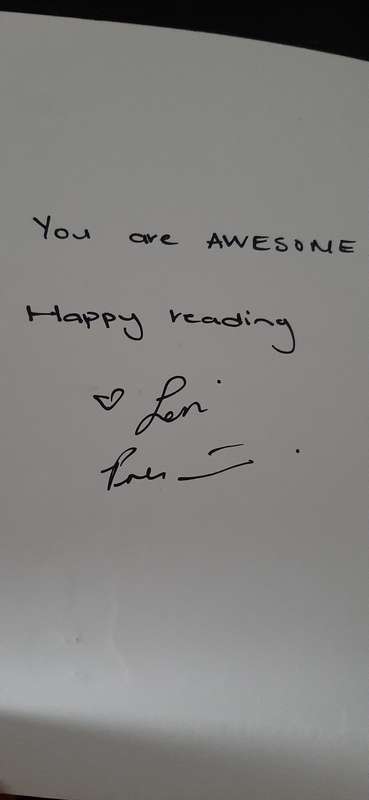 You are AWESOME
Happy reading
♡